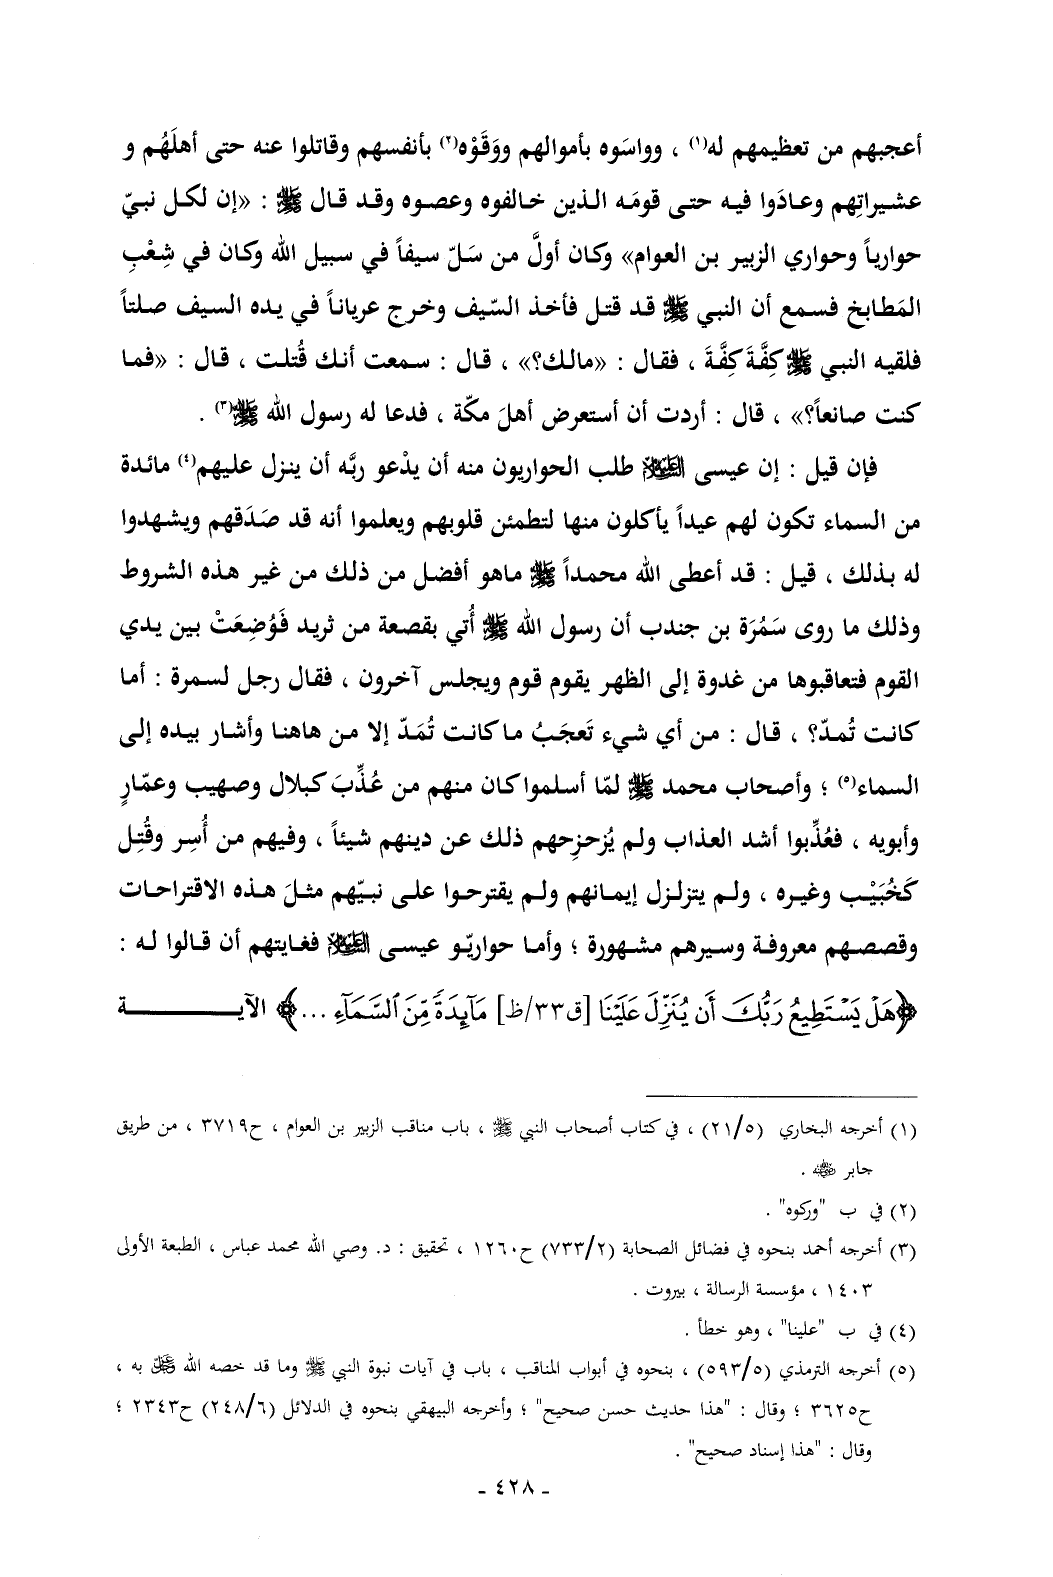 أعجبهم من تعظيمهم له(١) ، وواسَوه بأموالهم ووَقَوْه(٢) بأنفسهم وقاتلوا عنه حتى أهلَهُم و
عشيراتِهم وعادَوا فيه حتى قومَه الذين خالفوه وعصوه وقد قال ﷺ : «إن لكل نبيّ
حوارياً وحواري الزبير بن العوام» وكان أولَّ من سَلّ سيفاً في سبيل الله وكان في شِعْبِ
المَطابخ فسمع أن النبي ﷺ قد قتل فأخذ السّيف وخرج عرياناً في يده السيف صلتاً
فلقيه النبي ﷺ كِفَّةَ كِفَّةَ ، فقال : «مالك؟» ، قال : سمعت أنك قُتلت ، قال : «فما
كنت صانعاً؟» ، قال : أردت أن أستعرض أهلَ مكّة ، فدعا له رسول الله ﷺ(٣) .
فإن قيل : إن عيسى العَلَيْهِ السَّلام طلب الحواريون منه أن يدْعو ربَّه أن ينزل عليهم(٤) مائدة
من السماء تكون لهم عيداً يأكلون منها لتطمئن قلوبهم ويعلموا أنه قد صَدَقهم ويشهدوا
له بذلك ، قيل : قد أعطى الله محمداً ﷺ ماهو أفضل من ذلك من غير هذه الشروط
وذلك ما روى سَمُرَة بن جندب أن رسول الله ﷺ أُتي بقصعة من ثريد فَوُضِعَتْ بين يدي
القوم فتعاقبوها من غدوة إلى الظهر يقوم قوم ويجلس آخرون ، فقال رجل لسمرة : أما
كانت تُمدّ؟ ، قال : من أي شيء تَعجَبُ ما كانت تُمَدّ إلا من هاهنا وأشار بيده إلى
السماء(٥) ؛ وأصحاب محمد ﷺ لمّا أسلموا كان منهم من عُذِّبَ كبلال وصهيب وعمّارٍ
وأبويه ، فعُذِّبوا أشد العذاب ولم يُزحزِحهم ذلك عن دينهم شيئاً ، وفيهم من أُسِر وقُتِل
كَخُبَيْب وغيره ، ولم يتزلزل إيمانهم ولم يقترحوا على نبيّهم مثلَ هذه الاقتراحات
وقصصهم معروفة وسيرهم مشهورة ؛ وأما حواريّو عيسى العَلَيْهِ السَّلام فغايتهم أن قالوا له :
﴿هَلْ يَسْتَطِيعُ رَبُّكَ أَن يُنَزِّلَ عَلَيْنَا [ق٣٣/ظ] مَآئِدَةً مِّنَ ٱلسَّمَآءِ ...﴾ الآيـــــة
(١) أخرجه البخاري (٢١/٥) ، في كتاب أصحاب النبي ﷺ ، باب مناقب الزبير بن العوام ، ح٣٧١٩ ، من طريق
جابر رضي الله عنه .
(٢) في ب "وركوه" .
(٣) أخرجه أحمد بنحوه في فضائل الصحابة (٧٣٣/٢) ح١٢٦٠ ، تحقيق : د. وصي الله محمد عباس ، الطبعة الأولى
١٤٠٣ ، مؤسسة الرسالة ، بيروت .
(٤) في ب "علينا" ، وهو خطأ .
(٥) أخرجه الترمذي (٥٩٣/٥) ، بنحوه في أبواب المناقب ، باب في آيات نبوة النبي ﷺ وما قد خصه الله عَزَّ وَجَلَّ به ،
ح٣٦٢٥ ؛ وقال : "هذا حديث حسن صحيح" ؛ وأخرجه البيهقي بنحوه في الدلائل (٢٤٨/٦) ح٢٣٤٣ ؛
وقال : "هذا إسناد صحيح" .
- ٤٢٨ -